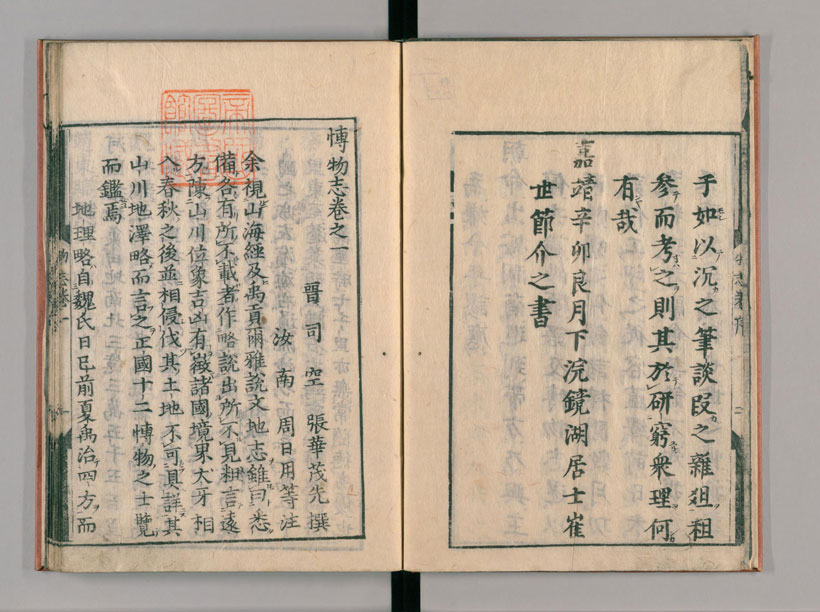 子如以沉之筆談段之雜俎租
參而考之則其於研窮衆理何
有哉
嘉靖辛卯良月下浣鏡湖居士崔
世節介之書
博物志卷之一
晋司空張華茂先撰
汝南周日用等注
余視山海經及禹貢爾雅說文地志雖曰悉
備各有所不載者作略說出所不見粗言遠
方陳山川位象吉凶有徵諸國境界犬牙相
入春秋之後並相侵伐其土地不可具詳其
山川地澤略而言之正國十二博物之士覽
而鑑焉
地理略自魏氏曰已前夏禹治四方而